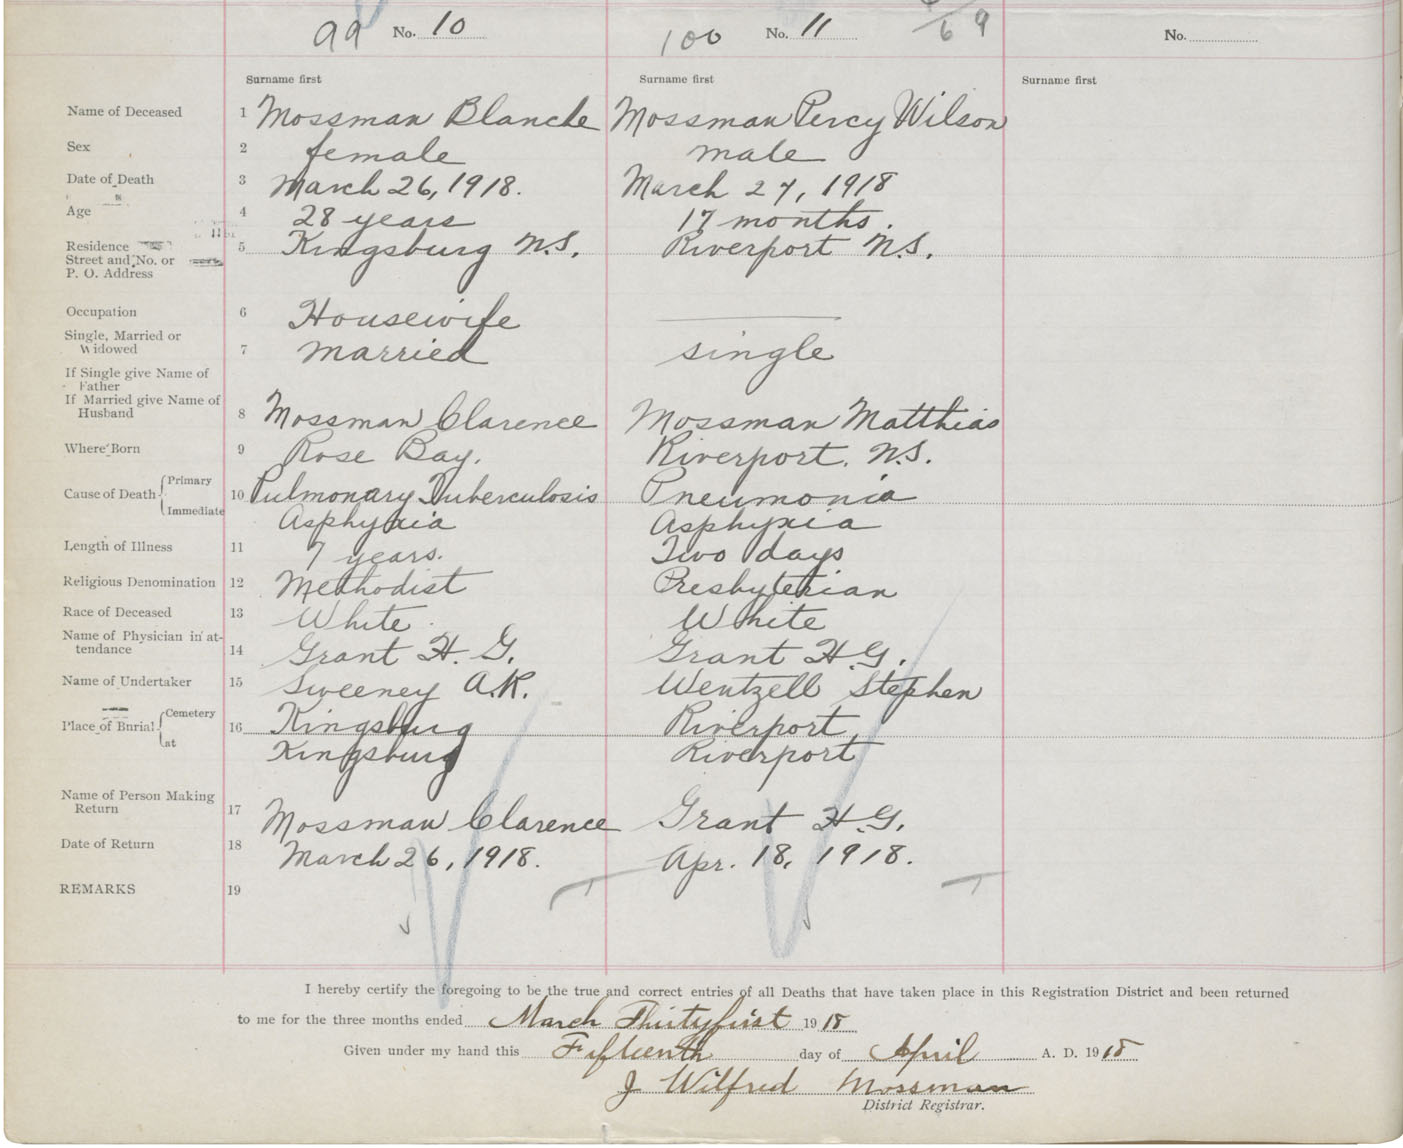 99 No. 10 100 No. 11 69 No.
Surname first Surname first Surname first
Name of Deceased 1 Mossman Blanche Mossman Percy Wilson
Sex 2 female male
Date of Death 3 March 26, 1918. March 27, 1918
Age 4 28 years 17 months.
Residence 5 Kingsburg N.S. Riverport N.S.
Street and No. or
P. O. Address
Occupation 6 Housewife
Single, Married or
Widowed 7 Married single
If Single give Name of
Father
If Married give Name of
Husband 8 Mossman Clarence Mossman Matthias
Where Born 9 Rose Bay. Riverport. N.S.
Cause of Death Primary 10 Pulmonary Tuberculosis Pneumonia
Immediate Asphyxia Asphyxia
Length of Illness 11 7 years. Two days
Religious Denomination 12 Methodist Presbyterian
Race of Deceased 13 White White
Name of Physician in at-
tendance 14 Grant H. G. Grant H.G.
Name of Undertaker 15 Sweeney A.R. Wentzell Stephen
Place of Burial Cemetery 16 Kingsburg Riverport
at Kingsburg Riverport
Name of Person Making
Return 17 Mossman Clarence Grant H.G.
Date of Return 18 March 26, 1918. Apr. 18, 1918.
REMARKS 19
I hereby certify the foregoing to be the true and correct entries of all Deaths that have taken place in this Registration District and been returned
to me for the three months ended March Thirtyfirst 1918
Given under my hand this Fifteenth day of April A. D. 1918
J Wilfred Mossman
District Registrar.